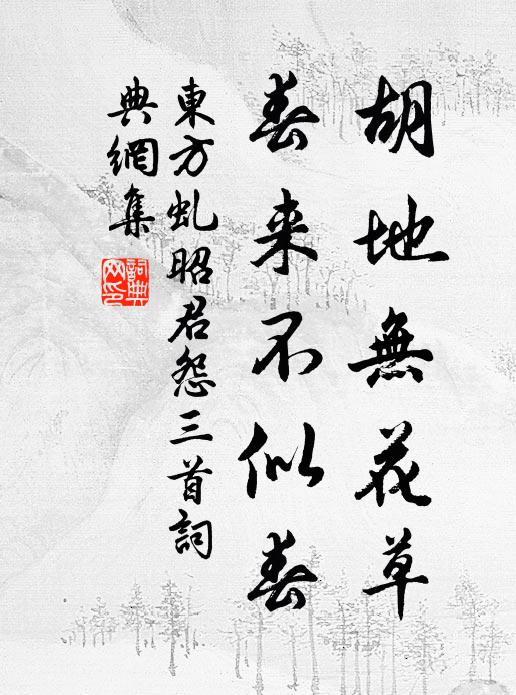 胡地無花草
春来不似春
東方虬昭君怨三首詞
典網集
詞典
网印